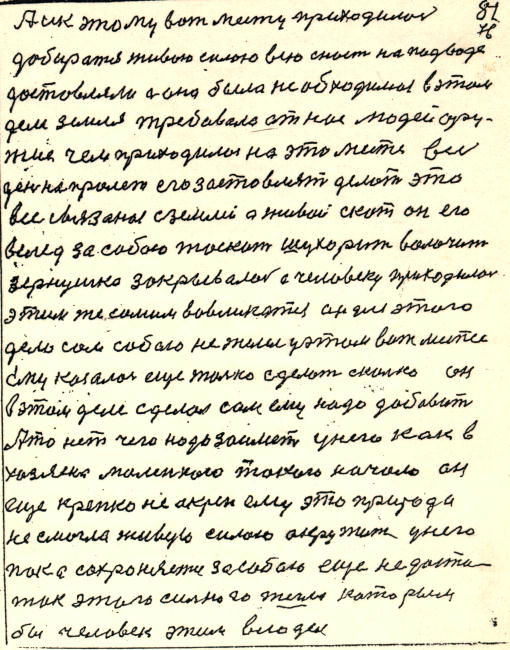 81
А ик этому вот месту приходилос
добиратя живою силою всю сност на подводе
достовляли а она была необходимая в этом
деле земля требовала от нас людей ору-
жие чем приходилос на это место все
ден на пролет его заставлят делат это
все связаное сземлей а живой скот он его
вслед за собою тоскат волочит
зернушко закрывалос а человеку приходилос
этим же самим вовликатся он для этого
дела сам собою не жалел у этом вот месте
ему казалос еще толко сделат сколко он
в этом деле сделал сам ему надо добавит
Ато нет чего надо заимет унего как в
хозяена маленкого такого начало он
еще крепко не акреп ему это природа
не смогла живую силою окружит унего
пока сохроняетя засобою еще недоста
ток этого силного тегла которым
бы человек этим владел